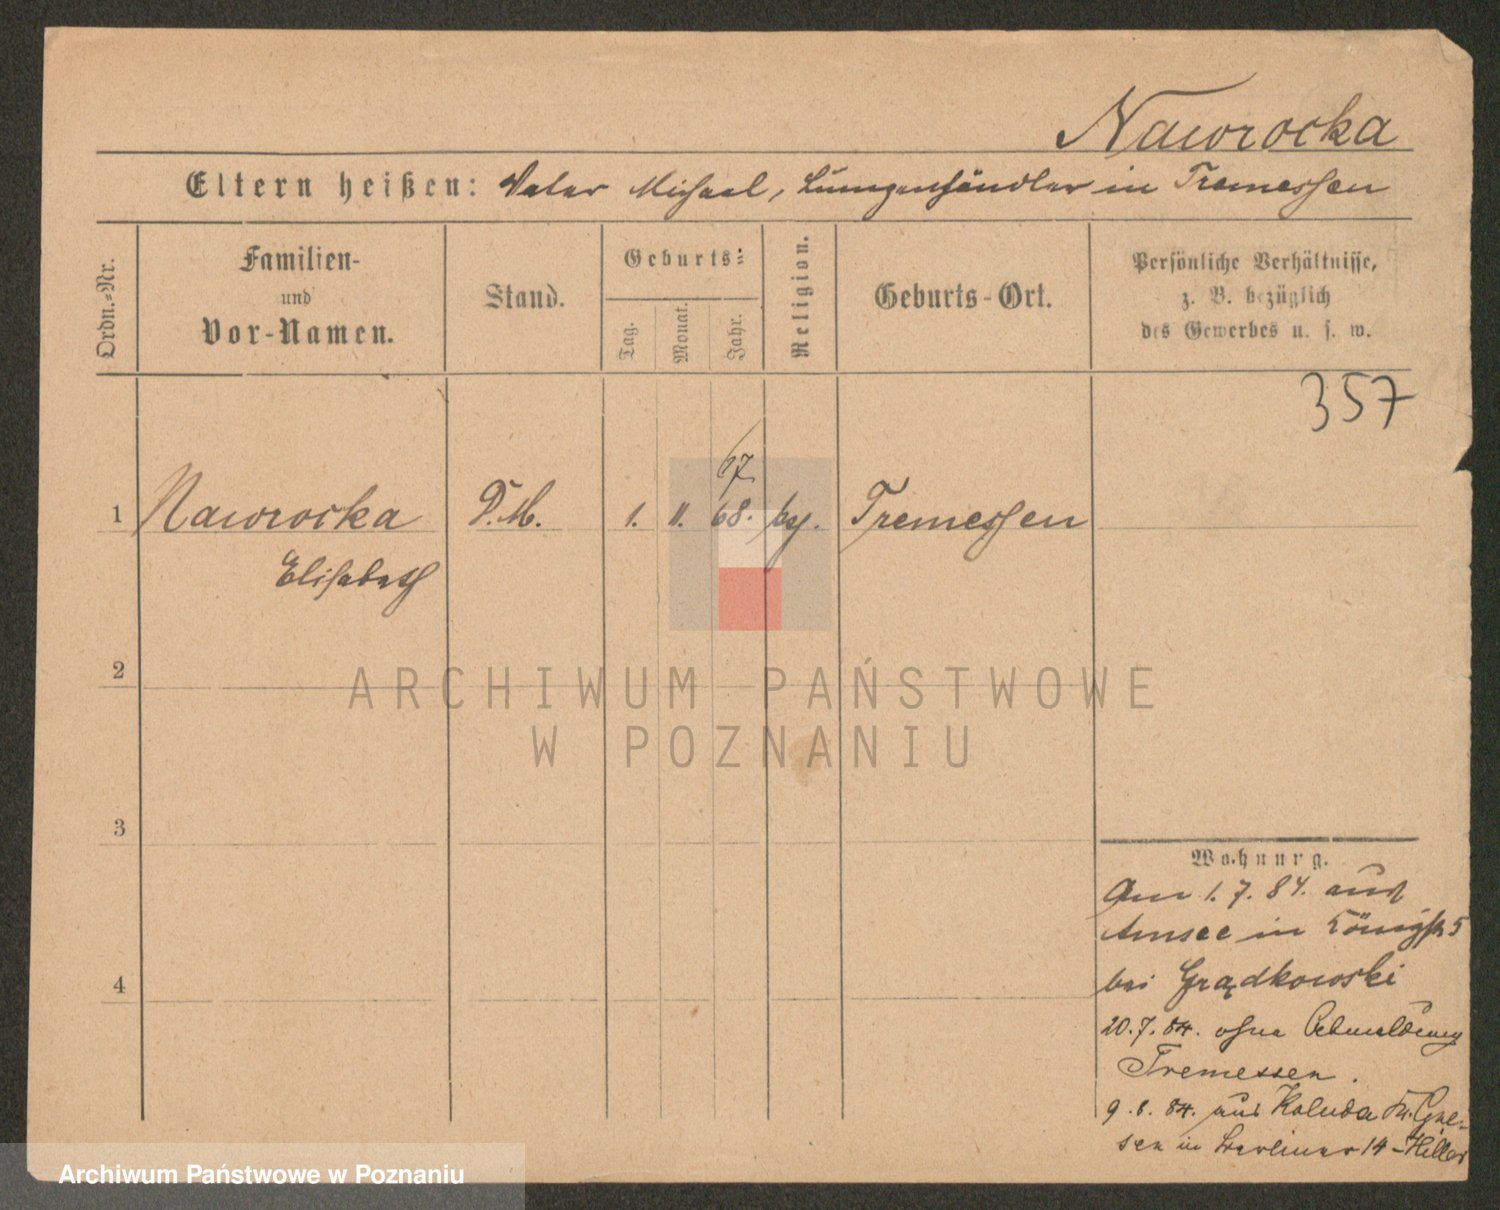 Nawrocka
Eltern heißen: Vater Michael, Lumpenhändler in Tremessen
Ordn.=Nr.
Familien-
und
Vor-Namen.
Stand.
Geburts=
Tag.
Monat.
Jahr.
Religion.
Geburts-Ort.
Persönliche Verhältnisse,
z. B. bezüglich
des Gewerbes u. s. w.
357
67
1 Nawrocka D.M. 1. 11. 68. Tremessen
Elisabeth
2
ARCHIWUM PAŃSTWOWE
W POZNANIU
3
Wohnung.
Am 1.7.84. aus
Amsee in Königstr 5
bei Grądkowski
4
20.7.84. ohne Abmeldung
Tremessen.
9.8.84. aus Kaluda Kr. Gne-
sen in Berliner 14 - Hiller
Archiwum Państwowe w Poznaniu